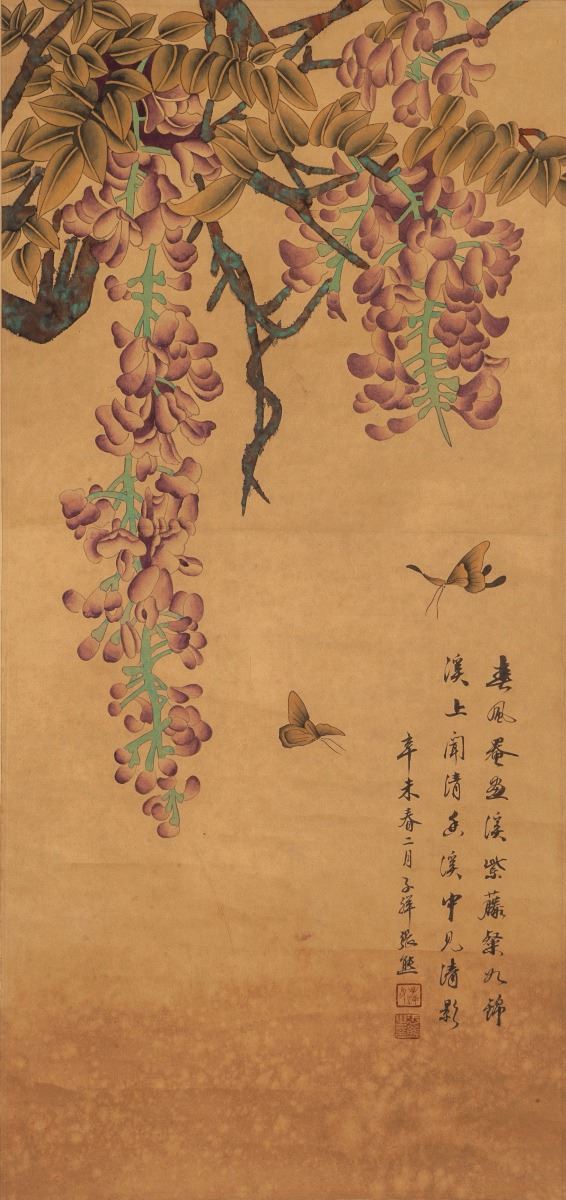 春風罨畫溪紫藤粲如錦
溪上聞清香溪中見清影
辛未春二月子祥張熊